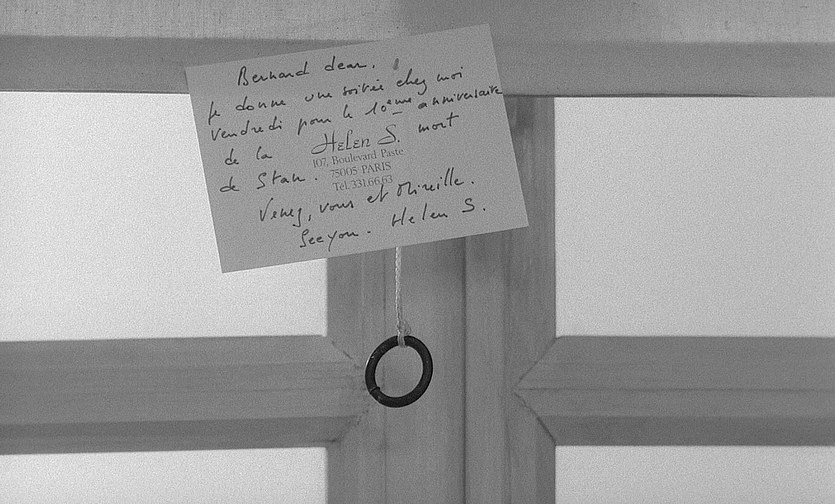 Bernard dear,
je donne une soirée chez moi
vendredi pour le 10ème anniversaire
de la mort
Helen S.
107, Boulevard Paste
75005 PARIS
Tel. 331.66.63
de Stan.
Venez, vous et Mireille.
See you. Helen S.